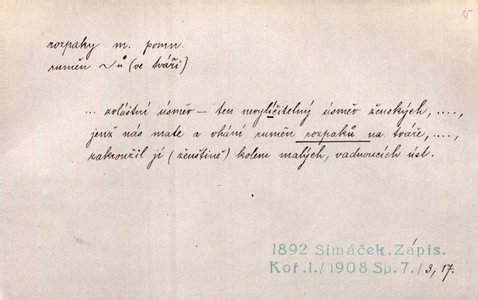 25
rozpaky m. pomn.
ruměn ~ů (ve tváři)
... zvláštní úsměv – ten nevylíčitelný úsměv ženských, ....,
jenž nás mate a vhání ruměn rozpaků na tváře, ....,
zakroužil jí (ženštině) kolem malých, vadnoucích úst.
1892 Simáček. Zápis.
Koř. I./1908 Sp. 7./3, 17.